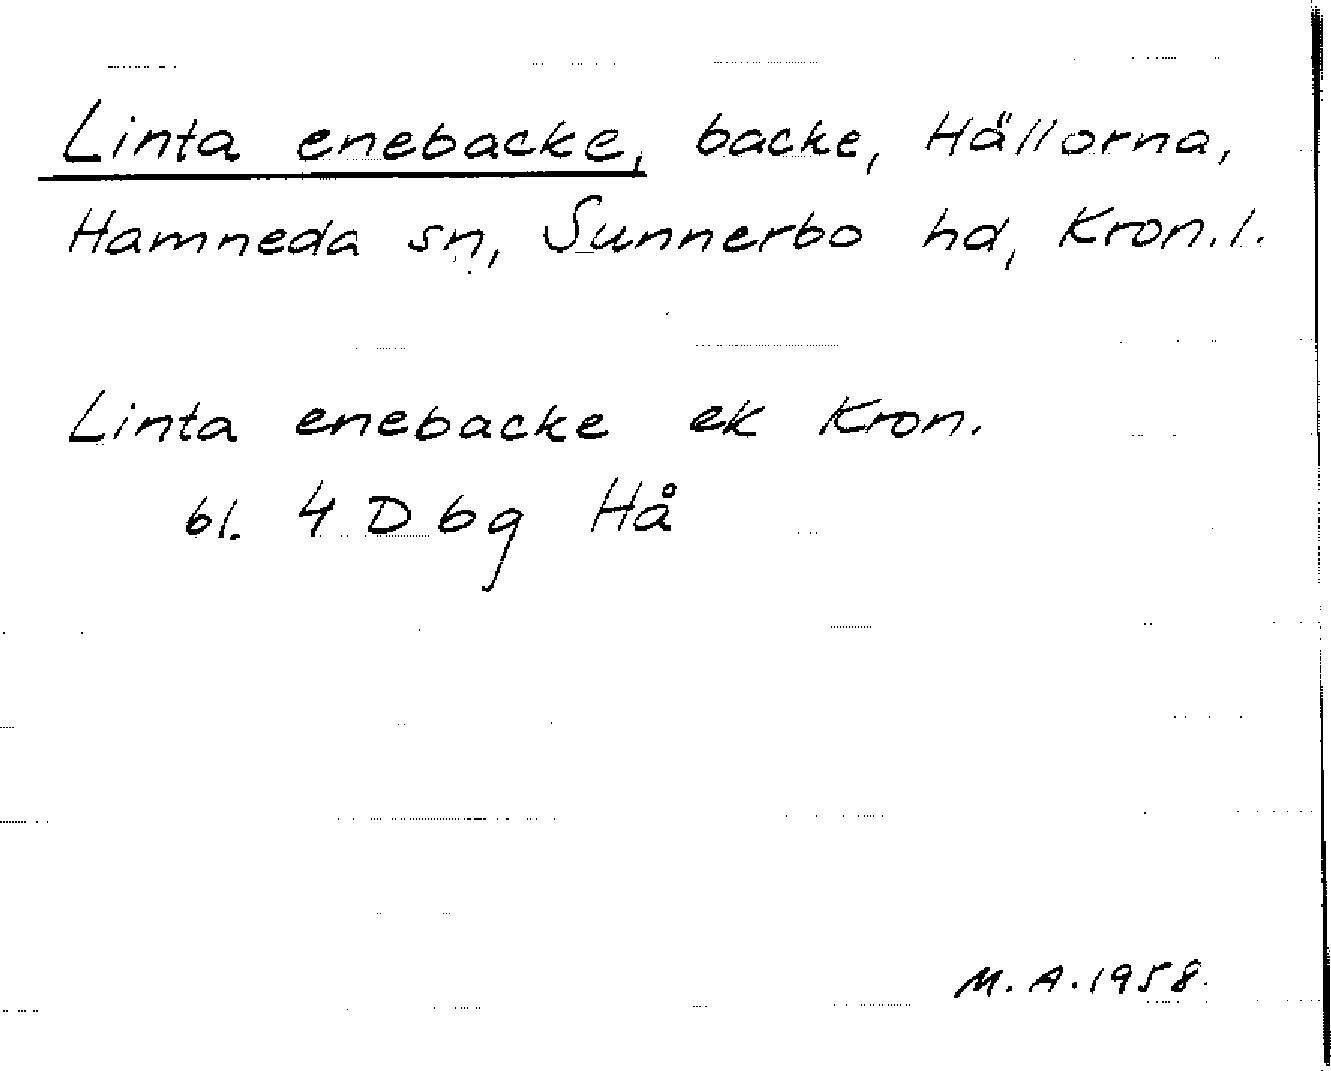 Linta enebacke, backe, Hällorna,
Hamneda sn, Sunnerbo hd, Kron.l.
Linta enebacke ek Kron.
bl. 4 D bg Hå
M.A.1958.